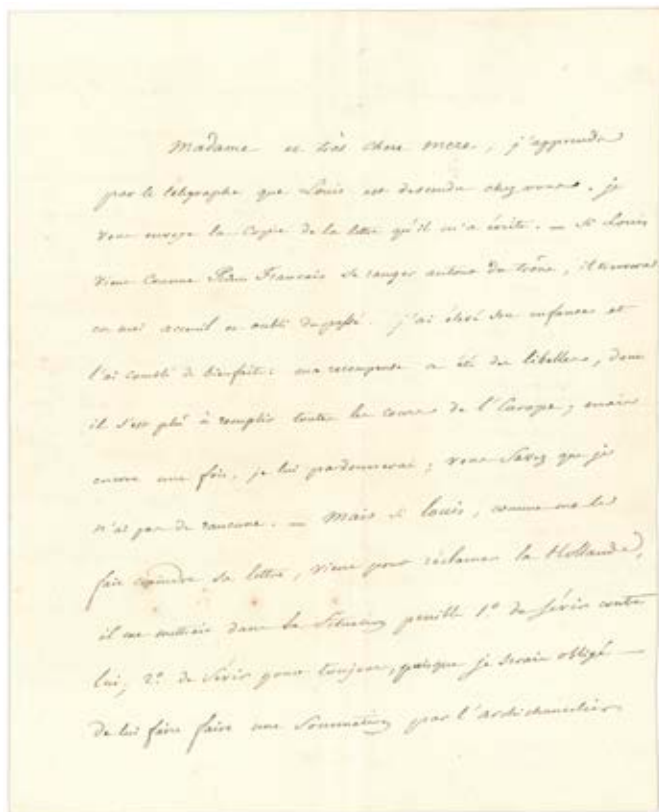 Madame et très chère mère, j'apprends
par le télégraphe que Louis est descendu chez vous. je
vous envoye la Copie de la lettre qu'il m'a écrite. — Si Louis
vient Comme Français se ranger autour du trône, il trouvera
en moi acceuil et oubli du passé. j'ai élevé son enfance et
l'ai comblé de bienfaits: ma recompense a été des libelles, dont
il s'est plû à remplir toutes les cours de l'Europe; mais
encore une fois, je lui pardonnerai; vous Savez que je
n'ai pas de rancune. — Mais si Louis, comme me le
fait craindre sa lettre, vient pour réclamer la Hollande,
il me mettroit dans la Situation penible 1.º de Sévir contre
lui, 2.º de Sévir pour toujours, puisque je serais obligé —
de lui faire faire une Sommation par l'archichancelier